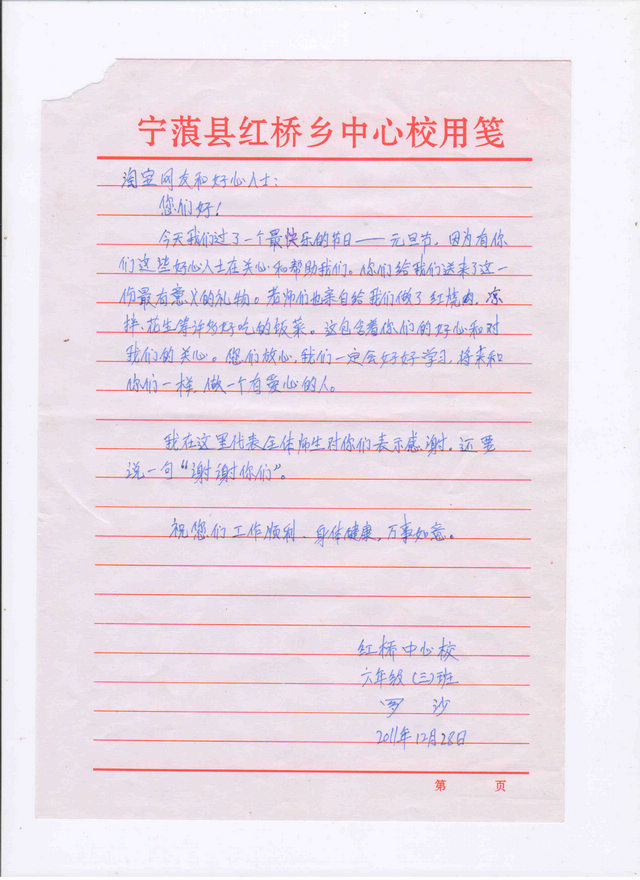 宁蒗县红桥乡中心校用笺
淘宝网友和好心人士:
您们好!
今天我们过了一个最快乐的节日——元旦节,因为有你
们这些好心人士在关心和帮助我们。你们给我们送来了这一
份最有意义的礼物。老师们也亲自给我们做了红烧肉,凉
拌、花生等许多好吃的饭菜。这包含着你们的好心和对
我们的关心。您们放心,我们一定会好好学习,将来和
你们一样,做一个有爱心的人。
我在这里代表全体师生对你们表示感谢。还要
说一句“谢谢你们”。
祝您们工作顺利、身体健康,万事如意。
红桥中心校
六年级(三)班
罗沙
2011年12月28日
第 页